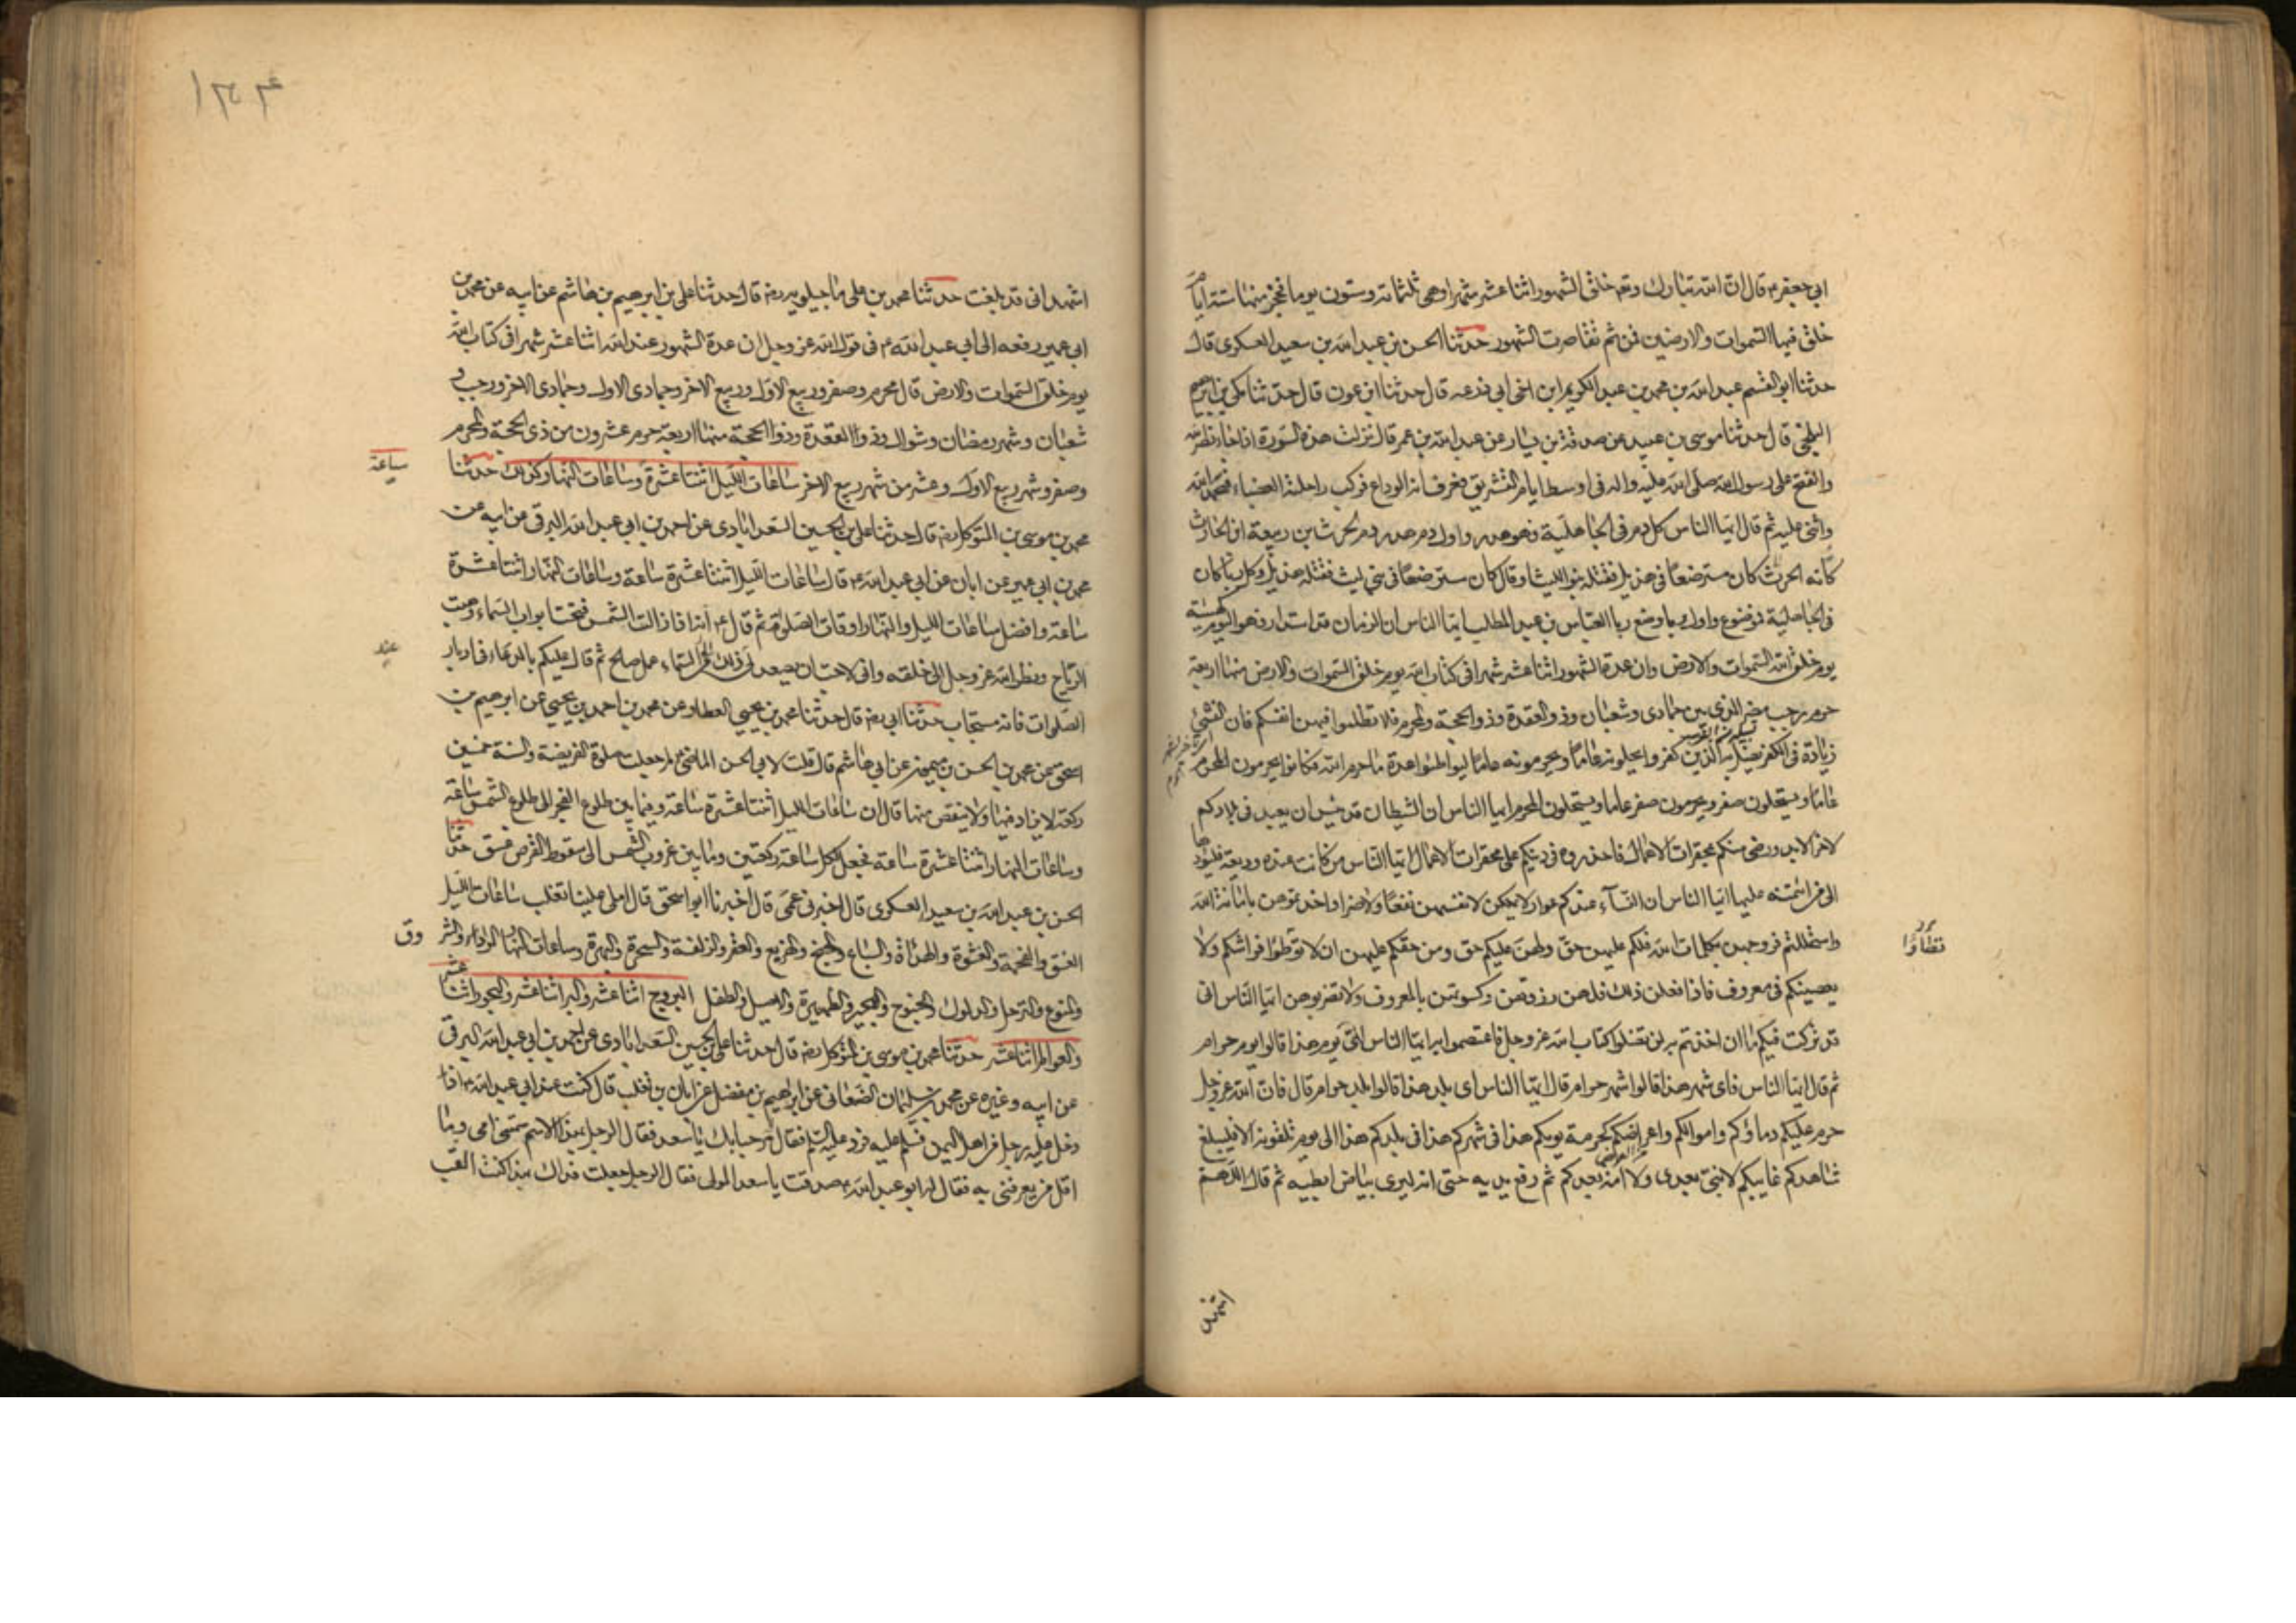 ابي جعفر ع قال ان الله تبارك وتع خلق الشهور اثنا عشر شهرا وهي ثلثمائة وستون يوما فحجز منها ستة ايام
خلق فيها السموات والارضين فمن ثم تقاصرت الشهور حدثنا الحسن بن عبد الله بن سعيد العسكري قال
حدثنا ابو القسم عبد الله بن محمد بن عبد الكريم ابن اخي ابي زرعه قال حدثنا ابن عون قال حدثنا مكي بن ابرهيم
البلخي قال حدثنا موسى بن عبيد عن صدقة بن يسار عن عبد الله بن عمر قال نزلت هذه السورة اذا جاء نصر الله
والفتح على رسول الله صلى الله عليه واله في اوسط ايام التشريق فعرف انه الوداع فركب راحلته العضباء فحمد الله
واثنى عليه ثم قال ايها الناس كل دم في الجاهلية فهو هدر واول دم هدر دم الحرث بن ربيعة ابن الحارث
كانه الحرث كان مسترضعا في هذيل فقتله بنو الليث او قال كان مسترضعا في بني ليث فقتله هذيل وكل ربا كان
في الجاهلية فموضوع واول ربا وضع ربا العباس بن عبد المطلب ايها الناس ان الزمان قد استدار فهو اليوم كهيئته
يوم خلق الله السموات والارض وان عدة الشهور اثنا عشر شهرا في كتاب الله يوم خلق السموات والارض منها اربعة
حرم رجب مضر الذي بين جمادى وشعبان وذو القعدة وذو الحجة والمحرم فلا تظلموا فيهن انفسكم فان النسئ
زيادة في الكفر يضل به الذين كفروا يحلونه عاما ويحرمونه عاما ليواطئوا عدة ما حرم الله فكانوا يحرمون المحرم
عاما ويستحلون صفر ويحرمون صفر عاما ويستحلون المحرم ايها الناس ان الشيطان قد يئس ان يعبد في بلادكم
لاخر الابد ورضي منكم بمحقرات الاعمال فاحذروه في دينكم على محقرات الاعمال ايها الناس من كانت عنده وديعة فليؤدها
الى من ائتمنه عليها ايها الناس ان النساء عندكم عوار لا يملكن لانفسهن نفعا ولا ضرا واخذتموهن بامانة الله
واستحللتم فروجهن بكلمات الله فلكم عليهن حق ولهن عليكم حق ومن حقكم عليهن ان لا توطئوا فراشكم ولا
يعصينكم في معروف فاذا فعلن ذلك فلهن رزقهن وكسوتهن بالمعروف ولا تضربوهن ايها الناس اني
قد تركت فيكم ما ان اخذتم به لن تضلوا كتاب الله عز وجل فاعتصموا به ايها الناس اي يوم هذا قالوا يوم حرام
ثم قال ايها الناس فاي شهر هذا قالوا شهر حرام قال ايها الناس اي بلد هذا قالوا بلد حرام قال فان الله عز وجل
حرم عليكم دماؤكم واموالكم واعراضكم كحرمة يومكم هذا في شهركم هذا في بلدكم هذا الى يوم تلقونه الا فليبلغ
شاهدكم غايبكم لا نبي بعدي ولا امة بعدكم ثم رفع يديه حتى انه ليرى بياض ابطيه ثم قال اللهم
اشهد
اشهد اني قد بلغت حدثنا محمد بن علي ماجيلويه رضه قال حدثنا علي بن ابرهيم بن هاشم عن ابيه عن محمد بن
ابي عمير رفعه الى ابي عبد الله ع في قول الله عز وجل ان عدة الشهور عند الله اثنا عشر شهرا في كتاب الله
يوم خلق السموات والارض قال محرم وصفر وربيع الاول وربيع الاخر وجمادى الاول وجمادى الاخر ورجب و
شعبان وشهر رمضان وشوال وذو القعدة وذو الحجة منها اربعة حرم عشرون من ذي الحجة والمحرم
وصفر وشهر ربيع الاول وعشر من شهر ربيع الاخر ساعات الليل اثنتا عشرة وساعات النهار كذلك حدثنا
ساعة
محمد بن موسى بن المتوكل رضه قال حدثنا علي بن الحسين السعد ابادي عن احمد بن ابي عبد الله البرقي عن ابيه عن
محمد بن ابي عمير عن ابان عن ابي عبد الله ع قال ساعات الليل اثنتا عشرة ساعة وساعات النهار اثنتا عشرة
ساعة وافضل ساعات الليل والنهار اوقات الصلوة ثم قال ع انه اذا زالت الشمس فتحت ابواب السماء وهبت
الرياح ونظر الله عز وجل الى خلقه واني لاحب ان يصعد لي ذلك الى السماء عمل صالح ثم قال عليكم بالدعاء في ادبار
عند
الصلوات فانه مستجاب حدثنا ابي رضه قال حدثنا محمد بن يحيى العطار عن محمد بن احمد بن يحيى عن ابرهيم بن
اسحق عن محمد بن الحسن بن ميمون عن ابي هاشم قال قلت لابي الحسن الماضي ع لم جعلت صلوة الفريضة والسنة خمسين
ركعة لا يزاد فيها ولا ينقص منها قال ان ساعات الليل اثنتا عشرة ساعة وفيما بين طلوع الفجر الى طلوع الشمس ساعة
وساعات النهار اثنتا عشرة ساعة فجعل لكل ساعة ركعتين وما بين غروب الشمس الى سقوط القرص غسق حدثنا
الحسن بن عبد الله بن سعيد العسكري قال اخبرني عمي قال اخبرنا ابو اسحق قال املى علينا تغلب ساعات الليل
الغسق والفحمة والعشوة والهدأة والسباع والجنح والهزيع والعفر والزلفة والسحرة والبهرة وساعات النهار الراد والشر
وق
والمتوع والترجل والدلوك والجنوح والهجير والظهيرة والاصيل والطفل البروج اثنا عشر والبر اثنا عشر والبحور اثنا عشر
والعوالم اثنا عشر حدثنا محمد بن موسى بن المتوكل رضه قال حدثنا علي بن الحسين السعد ابادي عن احمد بن ابي عبد الله البرقي
عن ابيه وغيره عن محمد بن سليمان الصنعاني عن ابراهيم بن مفضل عن ابان بن تغلب قال كنت عند ابي عبد الله ع اذ
دخل عليه رجل من اهل اليمن فسلم عليه فرد عليه السلم فقال مرحبا بك يا سعد فقال الرجل بهذا الاسم سمتني امي وما
اقل من يعرفني به فقال له ابو عبد الله ع صدقت يا سعد المولى فقال الرجل جعلت فداك بهذا كنت القب